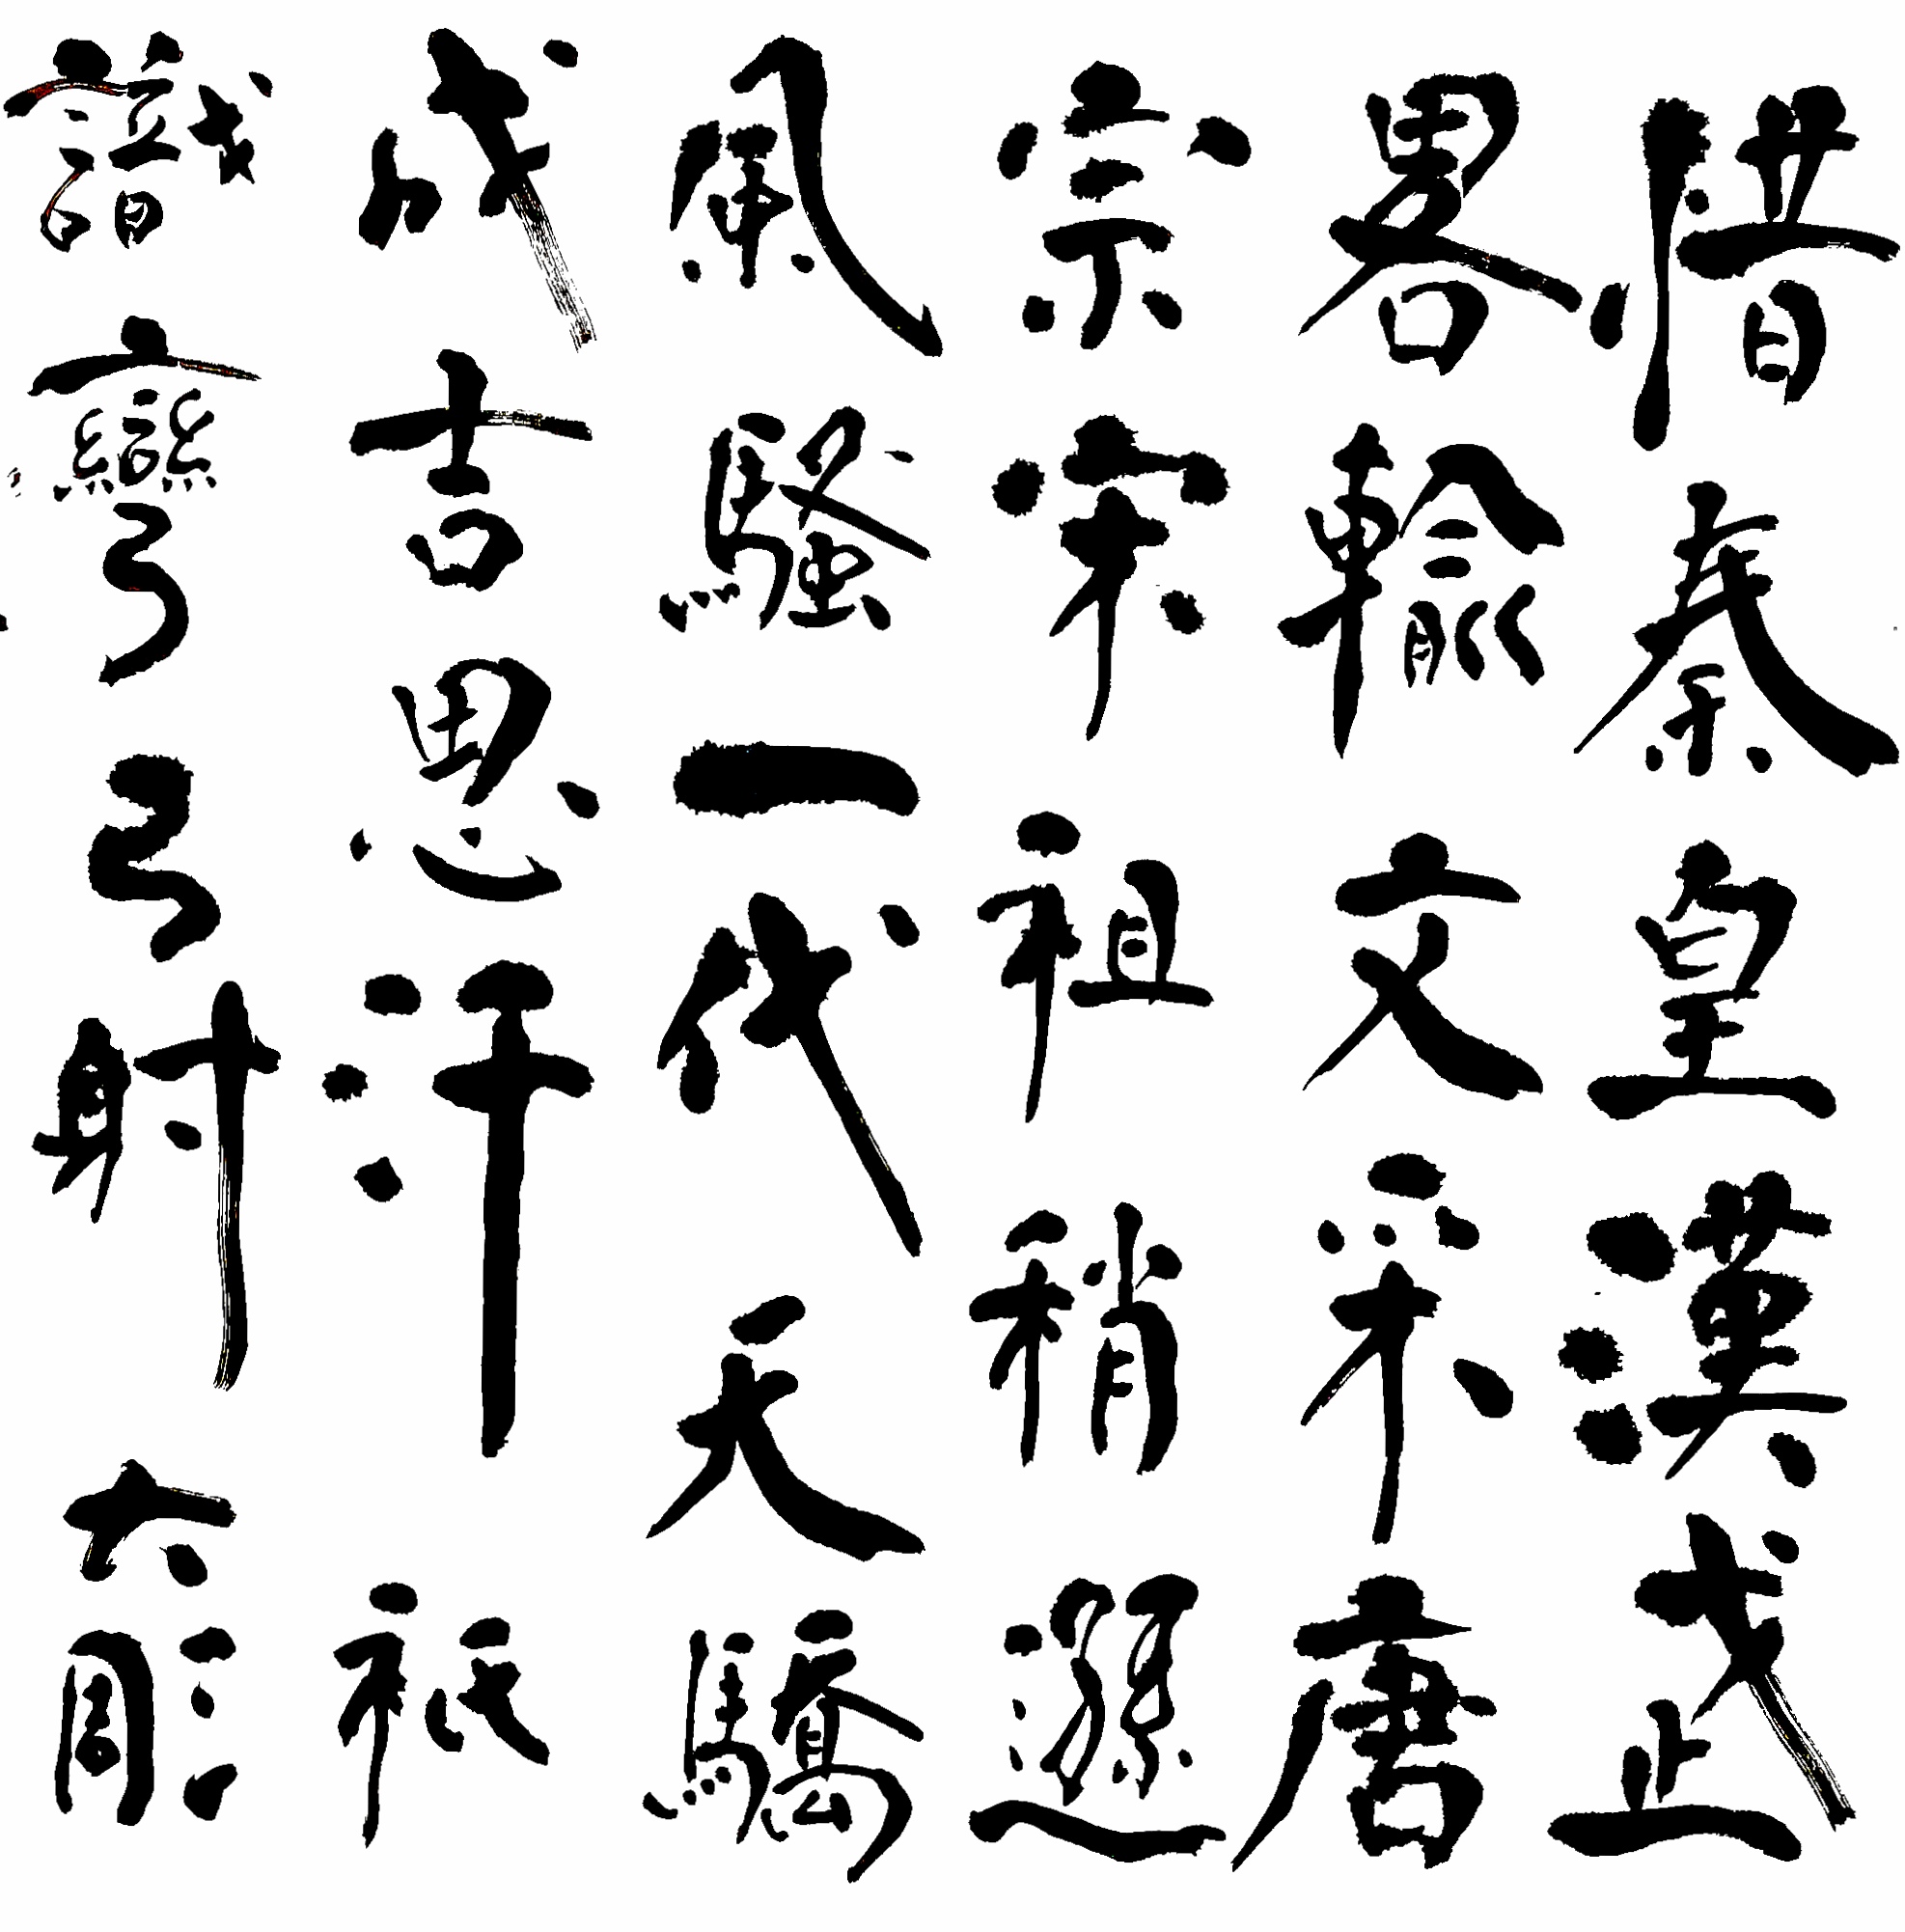 惜秦皇漢武
畧輸文采唐
宗宋祖稍遜
風騷一代天驕
成吉思汗祗
識彎弓射大彫